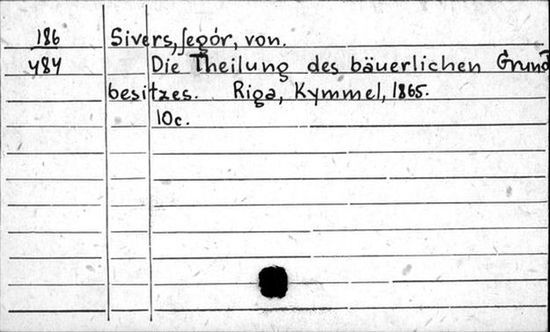 186 Sivers, Jegór, von.
484 Die Theilung des bäuerlichen Grund
besitzes. Riga, Kymmel, 1865.
10c.